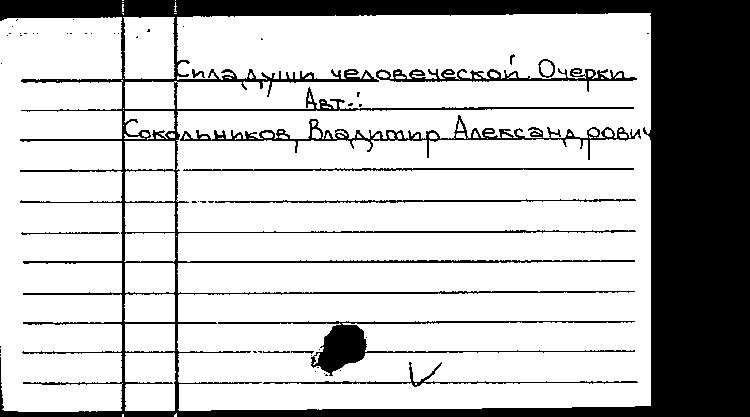 Сила души человеческой. Очерки
Авт.:
Сокольников, Владимир Александрович